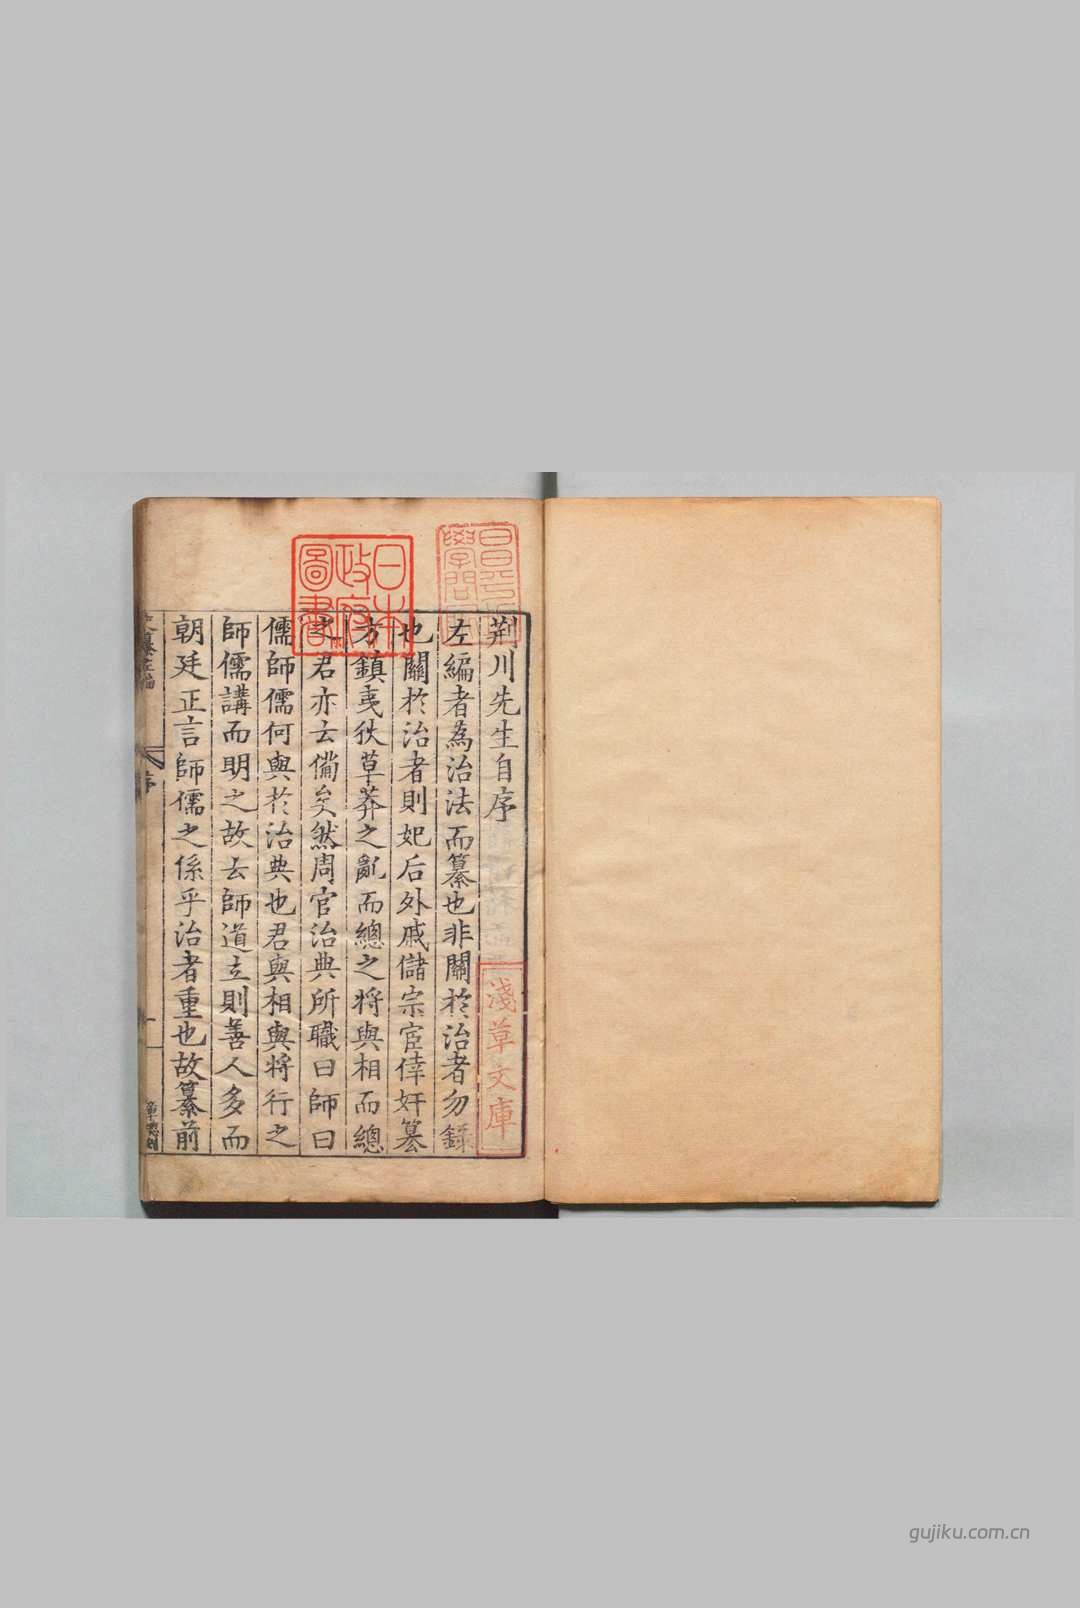 荆川先生自序
左編者為治法而纂也非關於治者勿錄
也關於治者則妃后外戚儲宗宦倖奸篡
方鎮夷狄草莽之亂而總之將與相而總
之君亦云備矣然周官治典所職曰師曰
儒師儒何與於治典也君與相與將行之
師儒講而明之故云師道立則善人多而
朝廷正言師儒之係乎治者重也故纂前
序
一
日本政府圖書
淺草文庫
gujiku.com.cn